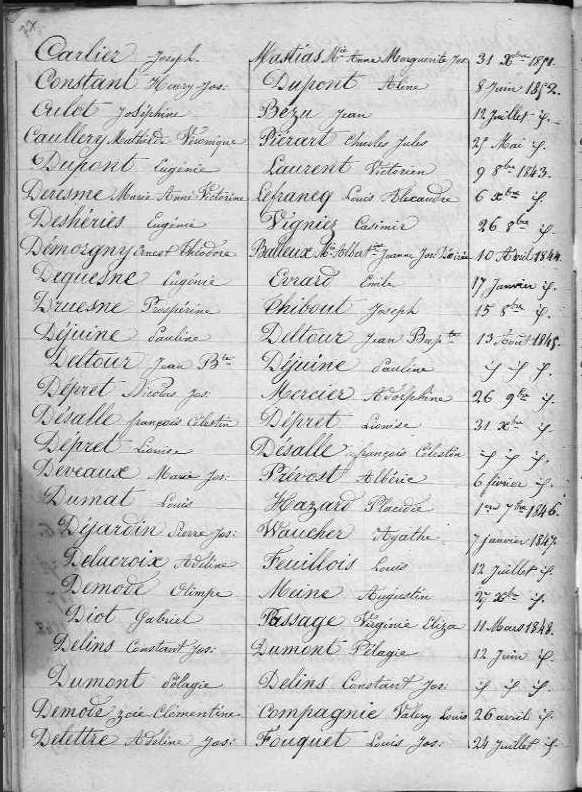 Carlier Joseph. Mastias Mie Anne Marguerite Jos: 31 Xbre 1851.
Constant Henry Jos: Dupont Aline 8 Juin 1852.
Culot Joséphine Bézu Jean 12 Juillet id.
Caullery Mathilde Véronique Piérart Charles Jules 25 Mai id.
Dupont Eugénie Laurent Victorien 9 8bre 1843.
Deresme Marie Anne Victorine Lefrancq Louis Alexandre 6 Xbre id.
Deshéries Eugénie Vigniez Casimir 26 8bre id.
Démorgny Ernest Théodore Balleux Jeanne 10 Avril 1844.
Dequesne Eugénie Evrard Emile 17 Janvier id.
Druesne Prospérine Thibout Joseph 15 8bre id.
Déjuine Pauline Deltour Jean Bapte 13 Août 1845.
Deltour Jean Bte Déjuine Pauline id id id.
Dépret Nicolas Jos: Mercier Adolphine 26 9bre id.
Désalle françois Célestin Dépret Lionise 31 Xbre id.
Dépret Lionise Désalle françois Célestin id id id.
Deveaux Marie Jos: Prévost Albéric 6 février id.
Dumat Louis Hazard Placidie 1er 7bre 1846.
Déjardin Pierre Jos: Waucher Agathe 7 Janvier 1847.
Delacroix Adeline Feuillois Louis 12 Juillet id.
Demode Olimpe Maine Augustin 27 Xbre id.
Diot Gabriel Passage Virginie Eliza 11 Mars 1848.
Delins Constant Jos: Dumont Pélagie 12 Juin id.
Dumont Pélagie Delins Constant Jos: id id id.
Demode Zoïe Clémentine Compagnie Valery Louis 26 avril id.
Delettre Adeline Jos: Fouquet Louis Jos: 24 Juillet id.